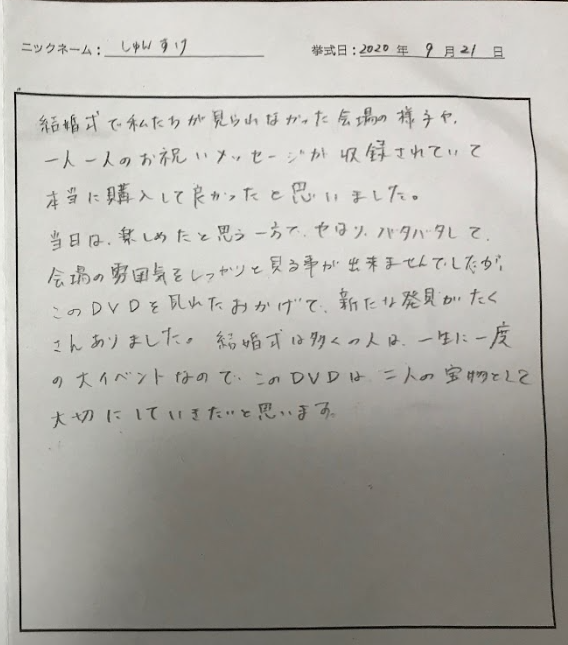 ニックネーム: しゅんすけ 挙式日: 2020 年 9 月 21 日
結婚式で私たちが見られなかった会場の様子や、
一人一人のお祝いメッセージが収録されていて
本当に購入して良かったと思いました。
当日は、楽しめたと思う一方で、やはり、バタバタして、
会場の雰囲気をしっかりと見る事が出来ませんでしたが、
このDVDを見れたおかげで、新たな発見がたく
さんありました。結婚式は多くの人は、一生に一度
の大イベントなので、このDVDは、二人の宝物として
大切にしていきたいと思います。